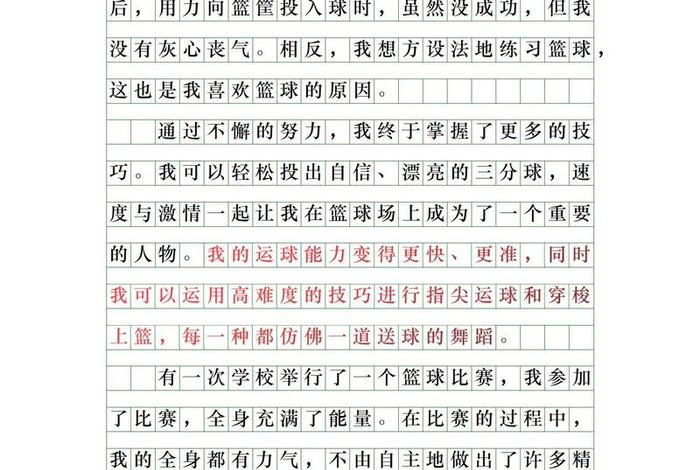 后，用力向篮筐投入球时，虽然没成功，但我
没有灰心丧气。相反，我想方设法地练习篮球，
这也是我喜欢篮球的原因。
通过不懈的努力，我终于掌握了更多的技
巧。我可以轻松投出自信、漂亮的三分球，速
度与激情一起让我在篮球场上成为了一个重要
的人物。我的运球能力变得更快、更准，同时
我可以运用高难度的技巧进行指尖运球和穿梭
上篮，每一种都仿佛一道送球的舞蹈。
有一次学校举行了一个篮球比赛，我参加
了比赛，全身充满了能量。在比赛的过程中，
我的全身都有力气，不由自主地做出了许多精